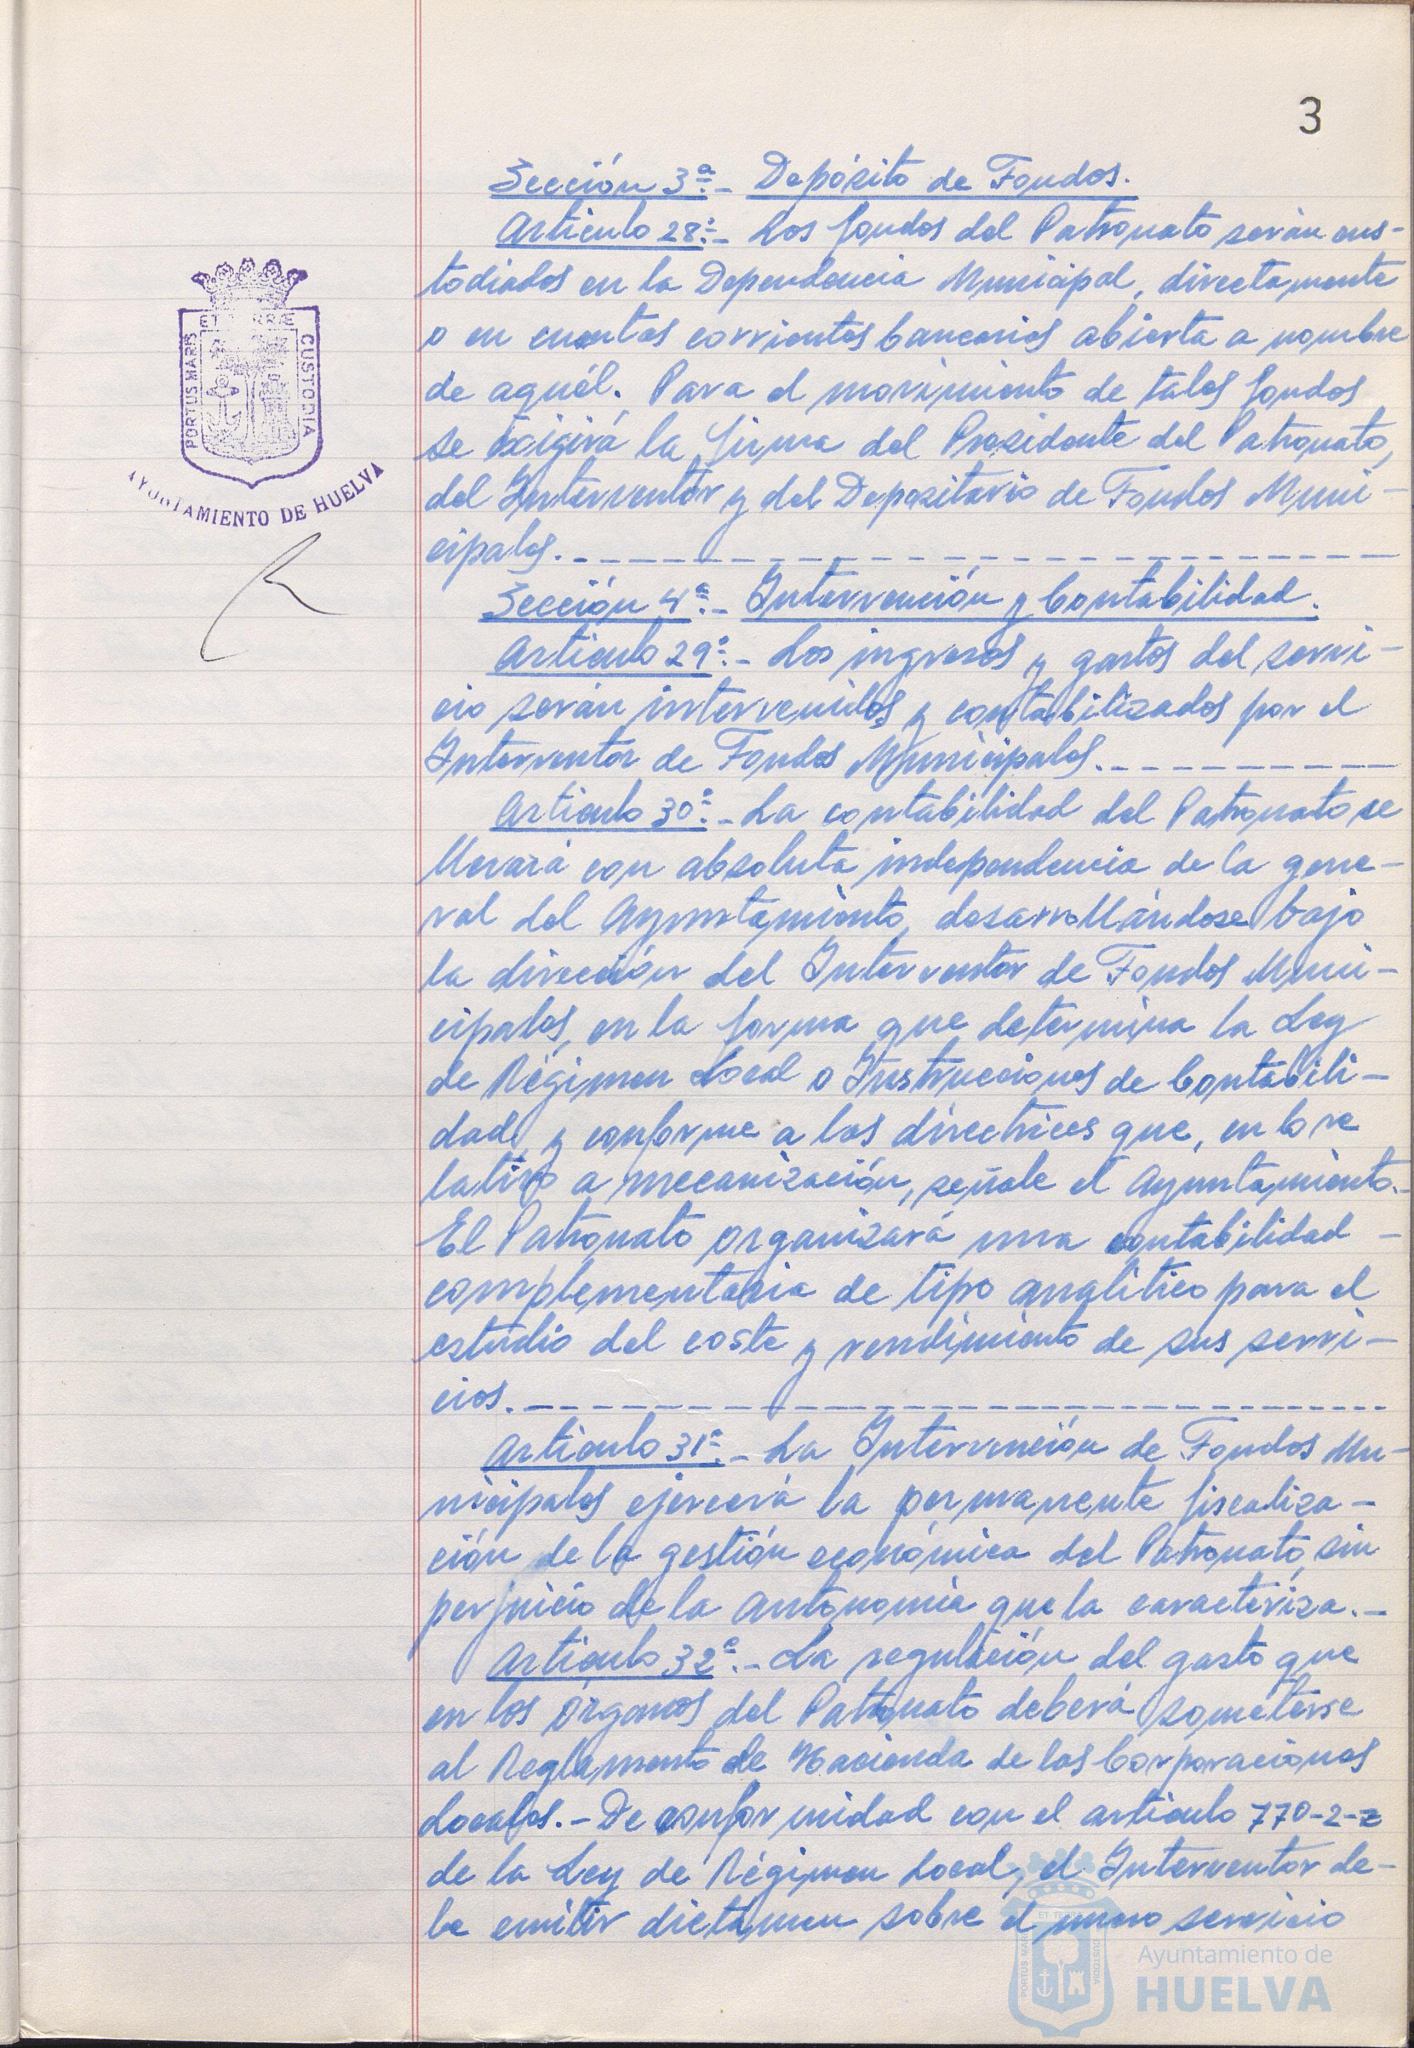 3
Sección 3ª.- Depósito de Fondos.
Artículo 28º.- Los fondos del Patronato serán cus-
todiados en la Dependencia Municipal, directamente
o en cuentas corrientes bancarias abierta a nombre
de aquél. Para el movimiento de tales fondos
se exigirá la firma del Presidente del Patronato,
del Interventor y del Depositario de Fondos Muni-
cipales.
Sección 4ª.- Intervención y Contabilidad.
Artículo 29º.- Los ingresos y gastos del servi-
cio serán intervenidos y contabilizados por el
Interventor de Fondos Municipales.
Artículo 30º.- La contabilidad del Patronato se
llevará con absoluta independencia de la gene-
ral del Ayuntamiento, desarrollándose bajo
la dirección del Interventor de Fondos Muni-
cipales, en la forma que determina la Ley
de Régimen Local o Instrucciones de Contabili-
dad, y conforme a las directrices que, en lo re
lativo a mecanización, señale el Ayuntamiento.-
El Patronato organizará una contabilidad -
complementaria de tipo analítico para el
estudio del coste y rendimiento de sus servi-
cios.
Artículo 31º.- La Intervención de Fondos Mu-
nicipales ejercerá la permanente fiscaliza-
ción de la gestión económica del Patronato, sin
perjuicio de la autonomía que la caracteriza.-
Artículo 32º.- La regulación del gasto que
en los órganos del Patronato deberá someterse
al Reglamento de Hacienda de las Corporaciones
Locales.- De conformidad con el artículo 770-2-
de la Ley de Régimen Local, el Interventor de-
be emitir dictámen sobre el nuevo servicio
PORTUS MARIS ET TERRÆ CUSTODIA
AYUNTAMIENTO DE HUELVA
PORTUS MARIS ET TERRÆ CUSTODIA
Ayuntamiento de
HUELVA